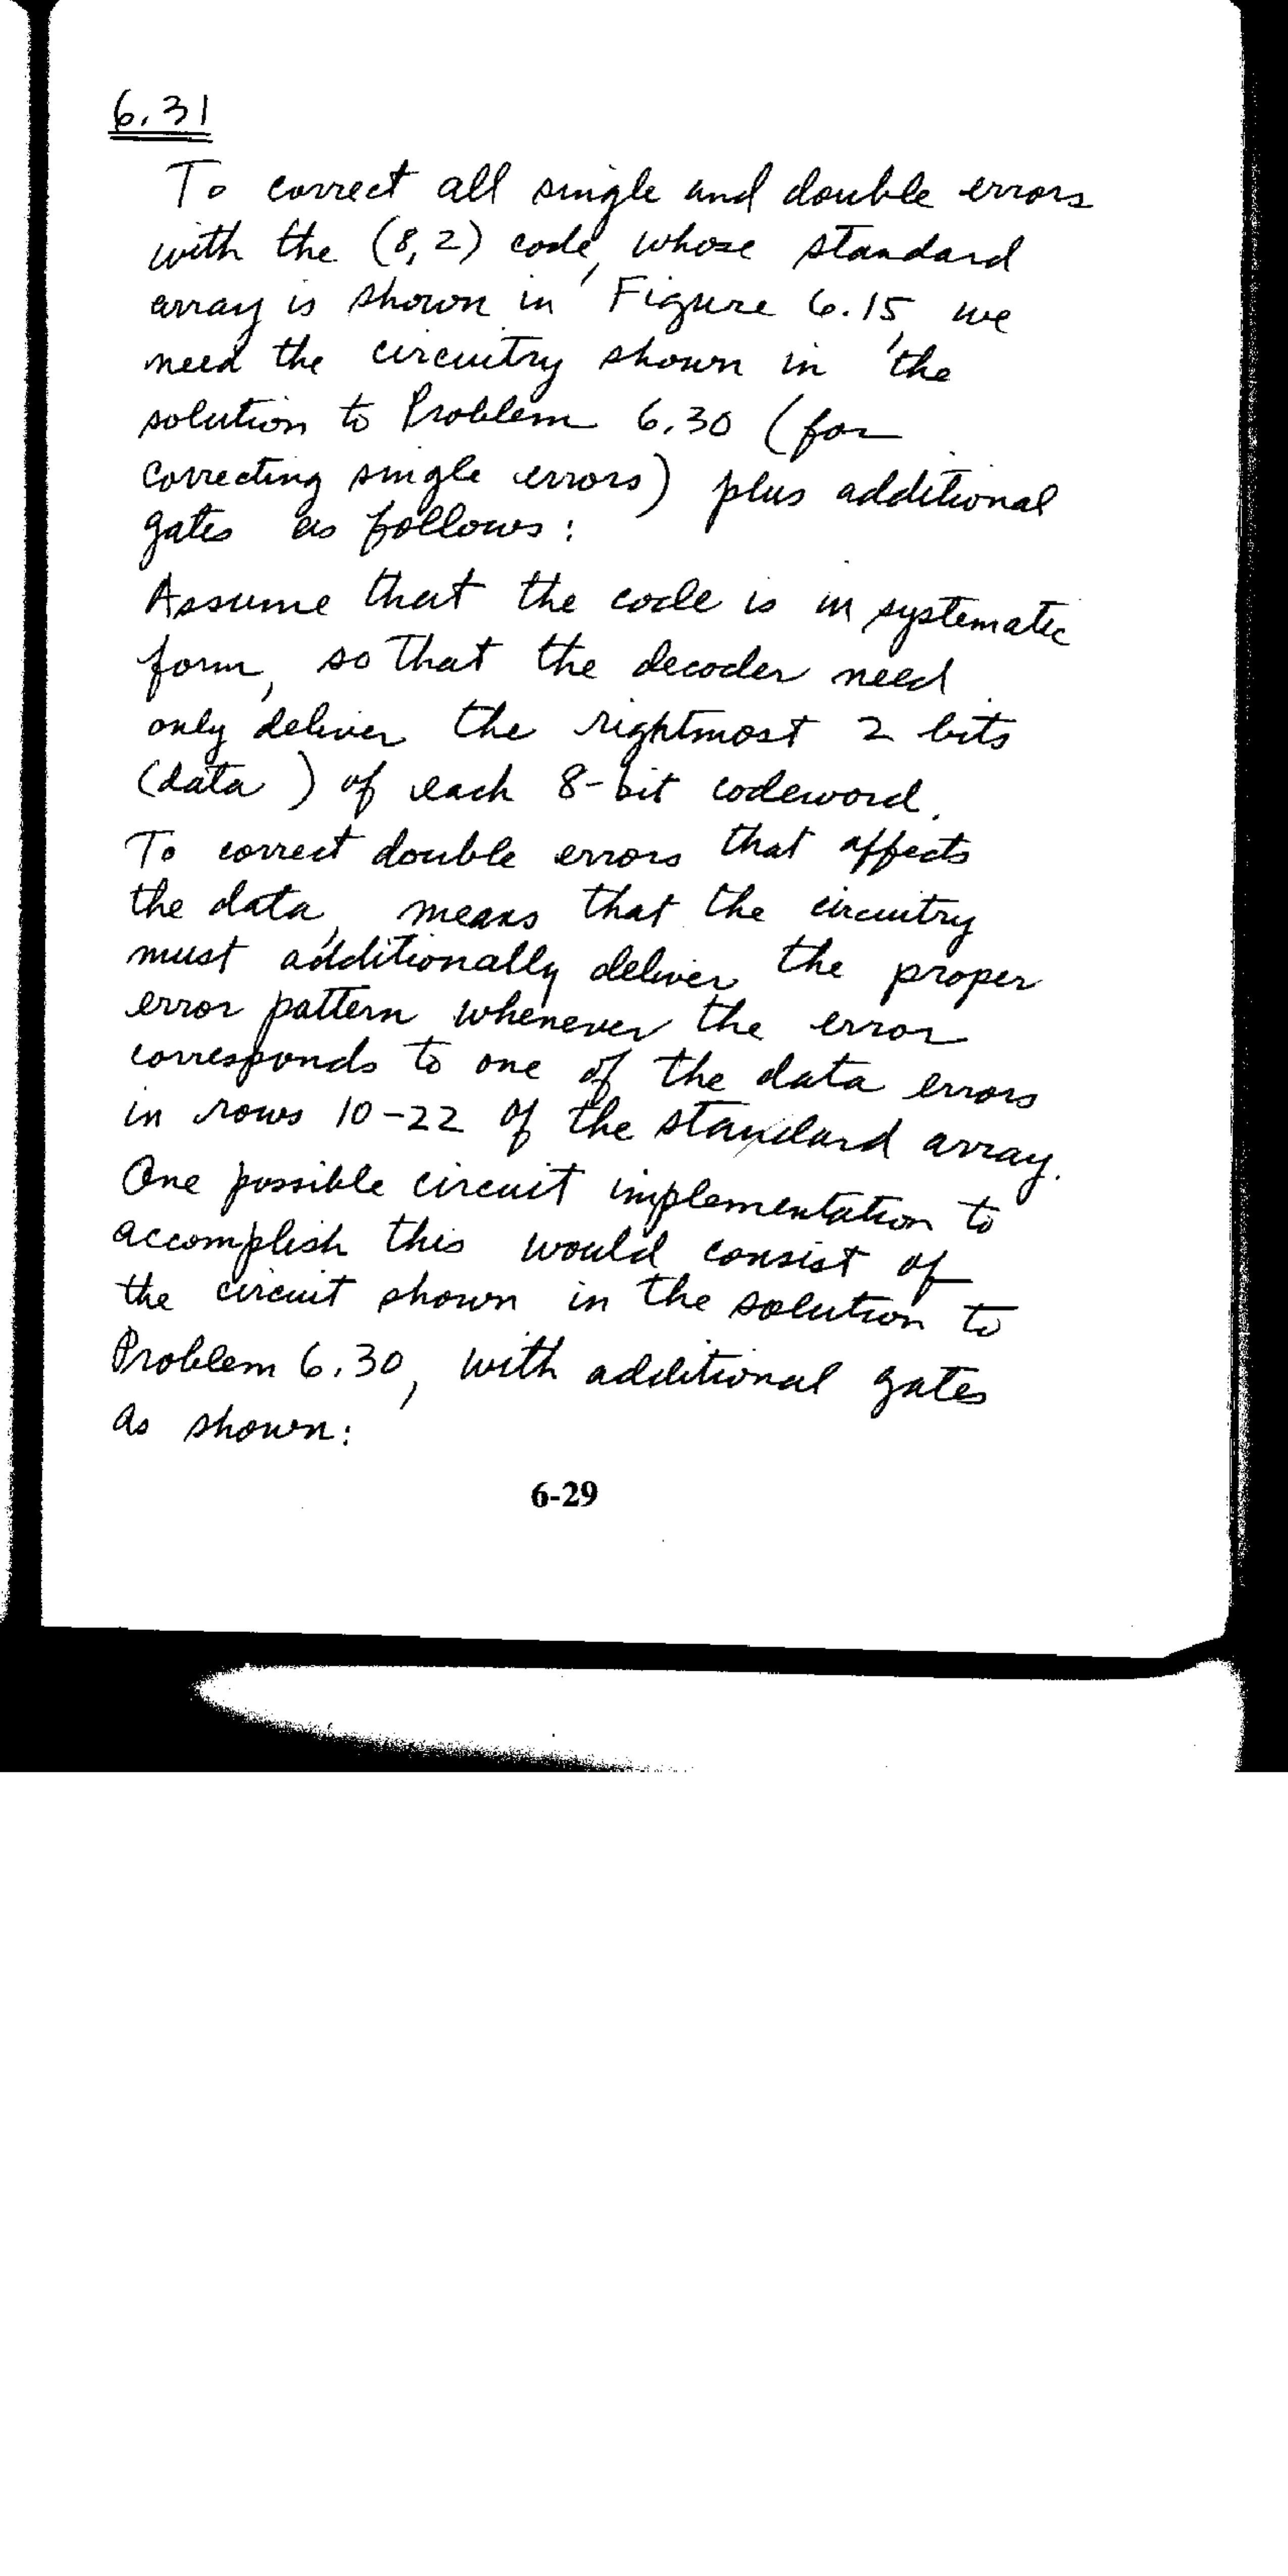 6.31
To correct all single and double errors
with the (8,2) code, whose standard
array is shown in Figure 6.15, we
need the circuitry shown in the
solution to Problem 6.30 (for
correcting single errors) plus additional
gates as follows:
Assume that the code is in systematic
form, so that the decoder need
only deliver the rightmost 2 bits
(data) of each 8-bit codeword.
To correct double errors that affects
the data, means that the circuitry
must additionally deliver the proper
error pattern whenever the error
corresponds to one of the data errors
in rows 10-22 of the standard array.
One possible circuit implementation to
accomplish this would consist of
the circuit shown in the solution to
Problem 6.30, with additional gates
as shown:
6-29